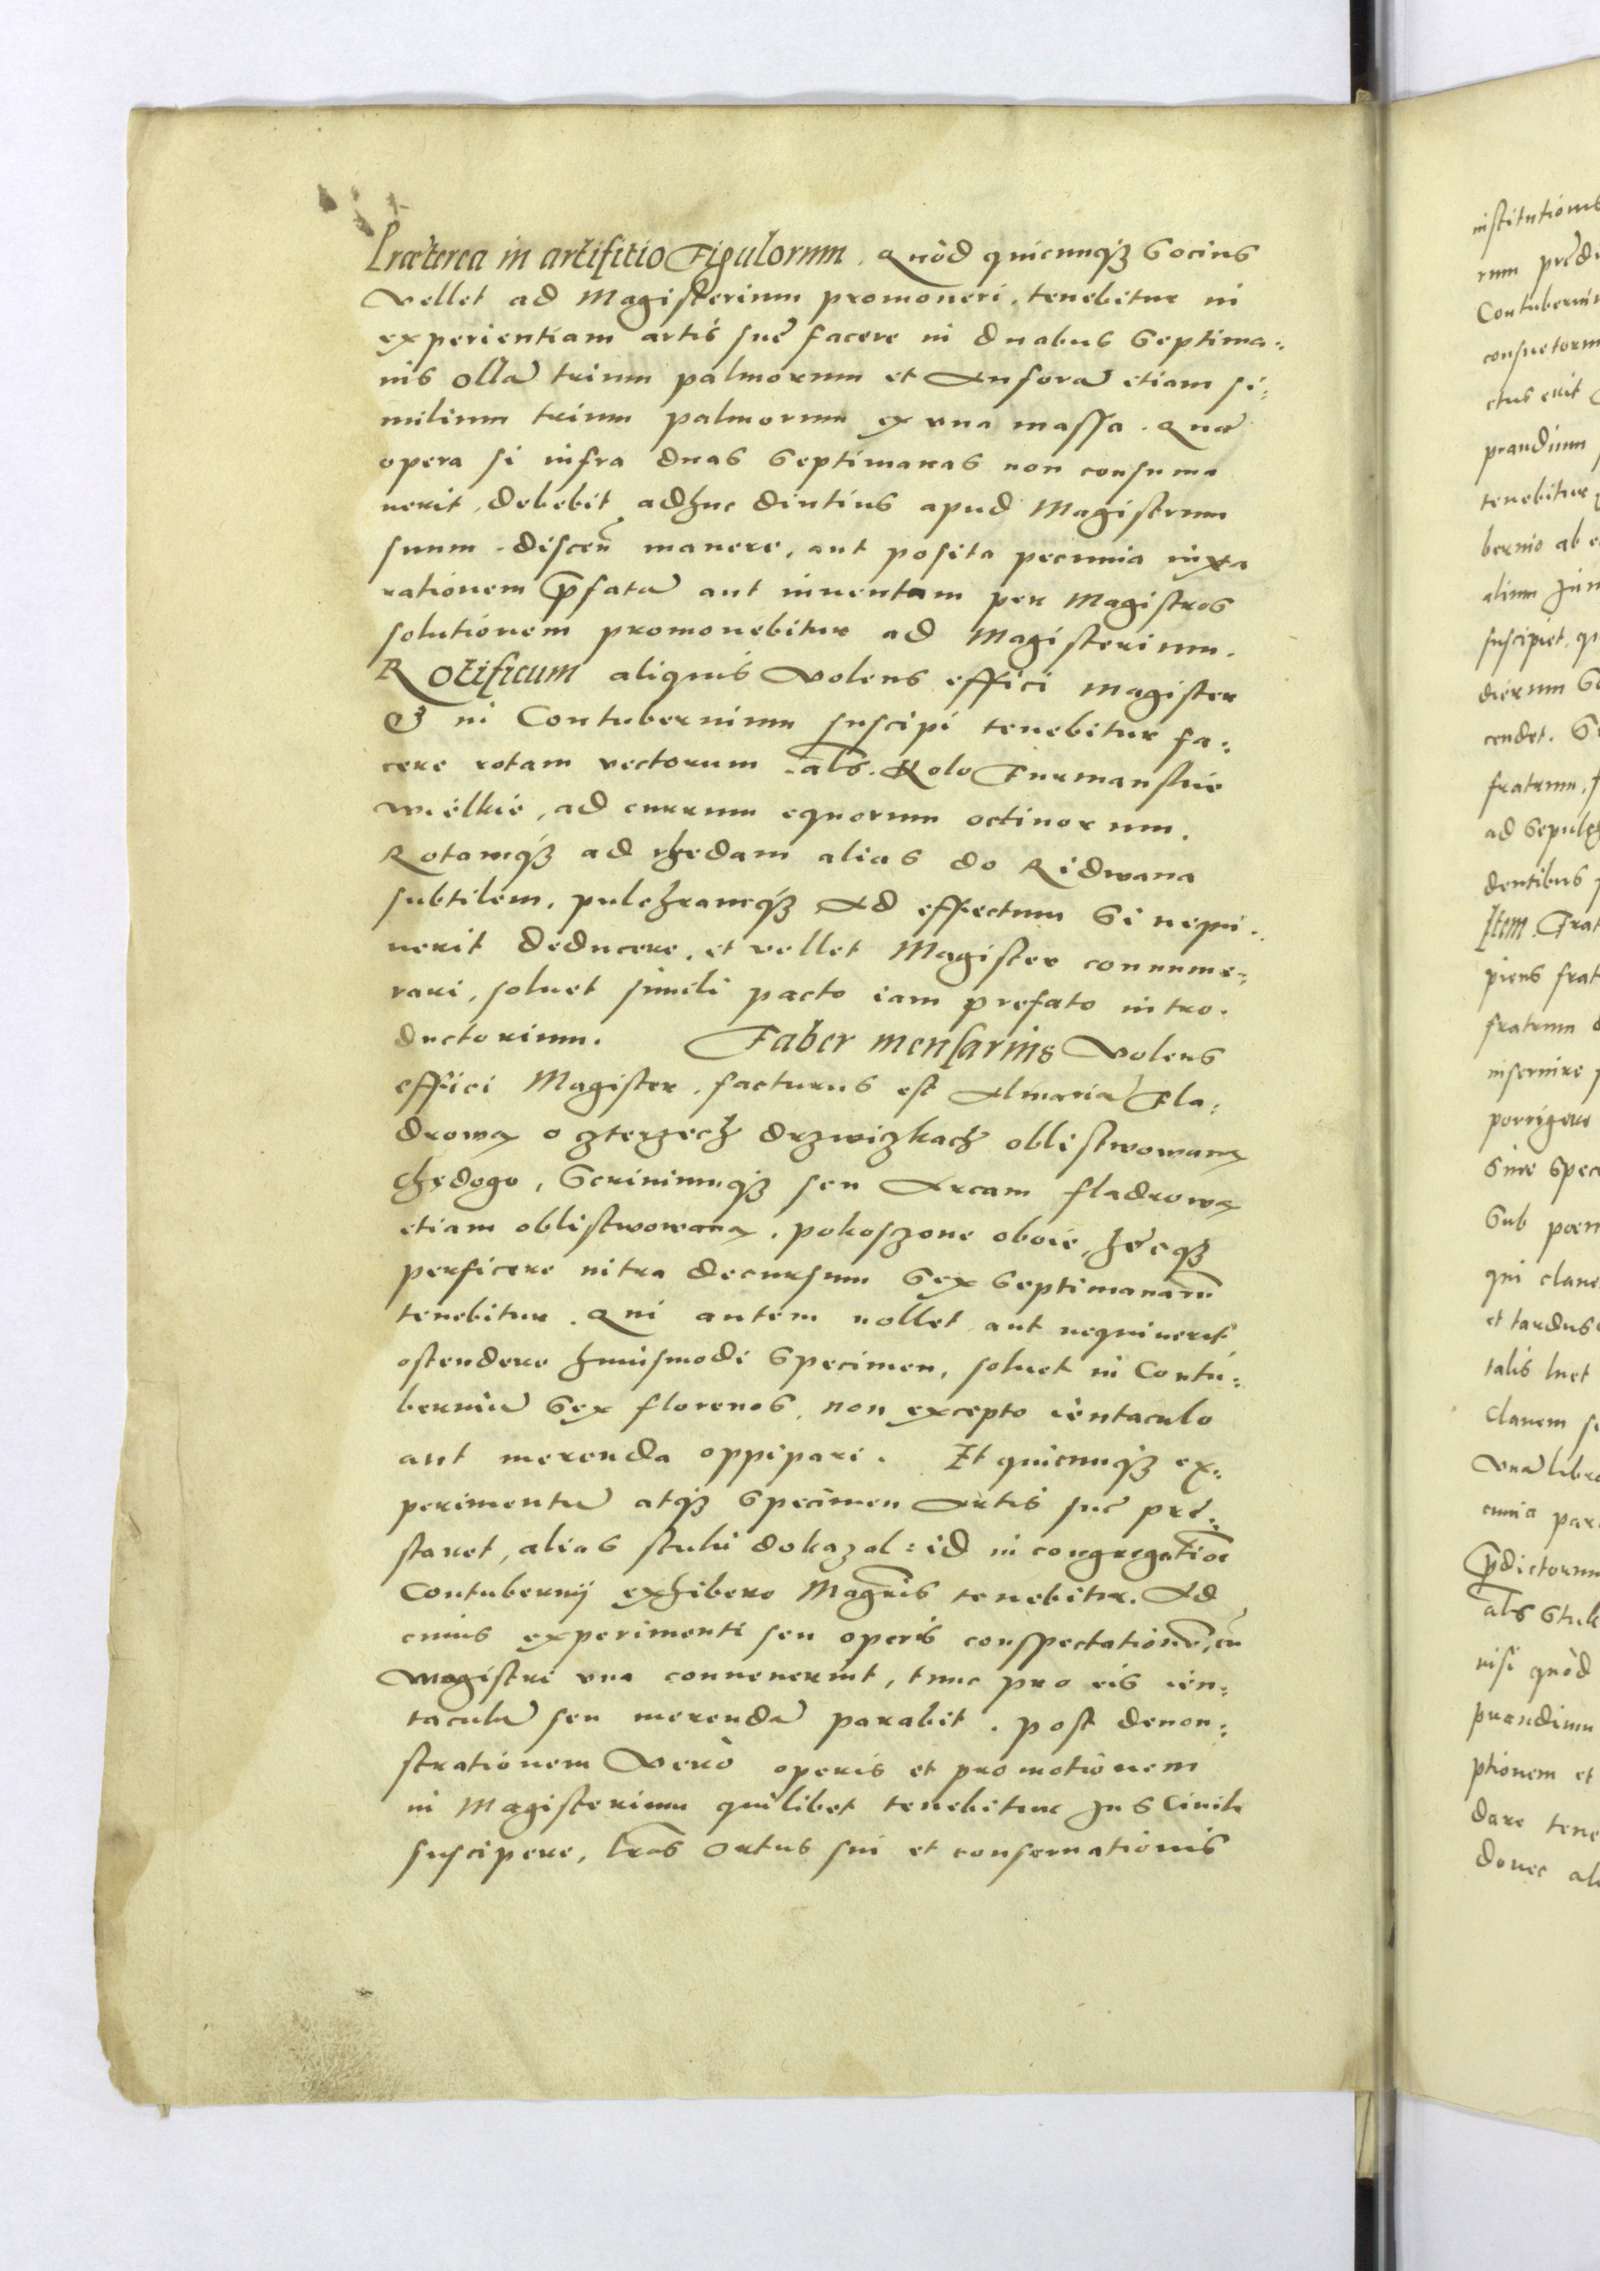 Præterea in artifitio Figulorum. Quòd quicunq3 Socius
Vellet ad Magisterium promoneri, tenebitur in
experientiam artis sue facere in duabus Septima:
nis ollā trium palmorum et Ansforā etiam si:
milium trium palmorum ex vna massa. Quæ
opera si infra duas Septimanas non consuma
uerit, debebit adhuc diutius apud Magistrum
suum discen̄ manere, aut posita pecunia iuxta
rationem p̄fatā aut inuentam per Magistros
solutionem promouebitur ad Magisterium.
Rotificum aliquis Volens effici Magister
& in Contubernium suscipi tenebitur fa:
cere rotam vectorum als. Kolo Furmanskie
wielkie, ad currum equorum octinorum.
Rotamq3 ad rhedam alias do Ridwana
subtilem, pulchramq3 Ad effectum Si nequi:
uerit deducere, et vellet Magister connume:
rari, soluet simili pacto iam prefato intro:
ductorium. Faber mensarius Volens
effici Magister, facturus est Almariā Fla:
drową o czterzech drzwiczkach oblistwowaną
chędogo, Scriniumq3 seu Arcam fladrową
etiam oblistwowaną, pokoszone oboie, hęcq3
perficere intra decursum Sex Septimanarū
tenebitur. Qui autem nollet aut nequiuerit
ostendere huiusmodi Specimen, soluet in Contu:
berniū Sex florenos, non excepto ientaculo
aut merenda oppipari. Et quicunq3 ex:
perimentū atq3 Specimen Artis sue pre:
staret, alias stuki dokazal: id in congregatione
Contubernij exhibere Magr̄is tenebitur. Ad
cuius experimenti seu operis conspectationē, cū
Magistri vna conuenerint, tunc pro eis ien:
taculū seu merendā parabit. Post demon:
strationem Verò operis et promotionem
in Magisterium quilibet tenebitur Jus Ciuile
suscipere, lr̄as Ortus sui et conseruationis
institutionis
rum predi
Contuberni
consuetorum
ctus erit
prandium
tenebitur
bernio ab e
alium
suscipiet, qu
dierum Se
cendet. S
fratrum,
ad Sepul
dentibus
Item Frat
piens frat
fratrum
inseruire
porrigere
Siue Spec
Sub pœn
qui claue
et tardus
talis luet
Clauem se
Vnā libra
cunia par
p̄dictorum
als Stuk
nisi quòd
prandium
ptionem et
dare tene
donec al